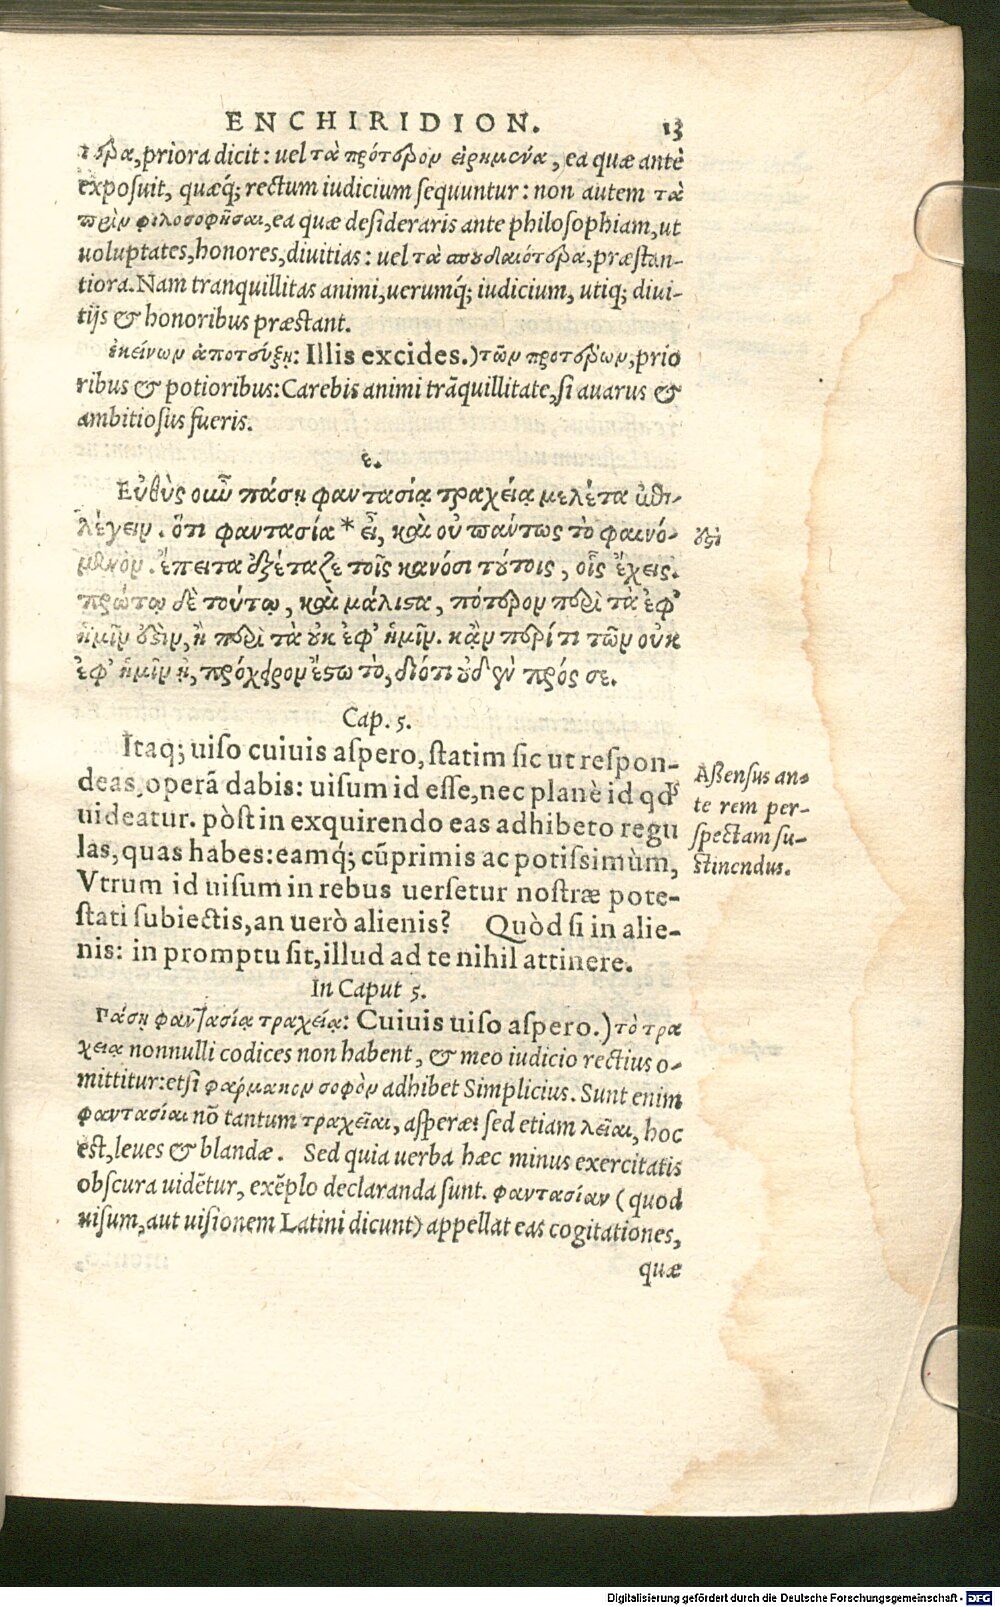 ENCHIRIDION. 13
τερα, priora dicit: uel τὰ πρότερον εἰρημένα, ea quæ antè
exposuit, quæq́; rectum iudicium sequuntur: non autem τὰ
πρὶν φιλοσοφῆσαι, ea quæ desideraris ante philosophiam, ut
uoluptates, honores, diuitias: uel τὰ σπουδαιότερα, præstan-
tiora. Nam tranquillitas animi, uerumq́; iudicium, utiq; diui-
tijs & honoribus præstant.
ἐκείνων ἀποτεύξῃ: Illis excides.) τῶν προτέρων, prio
ribus & potioribus: Carebis animi trãquillitate, si auarus &
ambitiosus fueris.
ε.
Εὐθὺς οὖν πάσῃ φαντασίᾳ τραχείᾳ μελέτα ἐπι-
λέγειν. ὅτι φαντασία * εἶ, καὶ οὐ πάντως τὸ φαινό-
μενον. ἔπειτα ἐξέταζε τοῖς κανόσι τούτοις, οἷς ἔχεις.
πρώτῳ δὲ τούτῳ, καὶ μάλιστα, πότερον περὶ τὰ ἐφ'
ἡμῖν ἐστιν, ἢ περὶ τὰ οὐκ ἐφ' ἡμῖν. κἂν περί τι τῶν οὐκ
ἐφ' ἡμῖν ᾖ, πρόχειρον ἔστω τὸ, διότι οὐδὲν πρός σε.
Cap. 5.
Itaq; uiso cuiuis aspero, statim sic ut respon-
deas, operã dabis: uisum id esse, nec planè id qd
uideatur. pòst in exquirendo eas adhibeto regu
las, quas habes: eamq́; cũprimis ac potissimùm,
Vtrum id uisum in rebus uersetur nostræ pote-
stati subiectis, an uerò alienis? Quòd si in alie-
nis: in promptu sit, illud ad te nihil attinere.
Aßensus an-
te rem per-
spectam su-
stinendus.
In Caput 5.
Πάσῃ φαντασίᾳ τραχείᾳ: Cuiuis uiso aspero.) τὸ τρα
χείᾳ nonnulli codices non habent, & meo iudicio rectius o-
mittitur: etsi φάρμακον σοφὸν adhibet Simplicius. Sunt enim
φαντασίαι nõ tantum τραχεῖαι, asperæ: sed etiam λεῖαι, hoc
est, leues & blandæ. Sed quia uerba hæc minus exercitatis
obscura uidẽtur, exẽplo declaranda sunt. φαντασίαν (quod
uisum, aut uisionem Latini dicunt) appellat eas cogitationes,
quæ
Digitalisierung gefördert durch die Deutsche Forschungsgemeinschaft - DFG